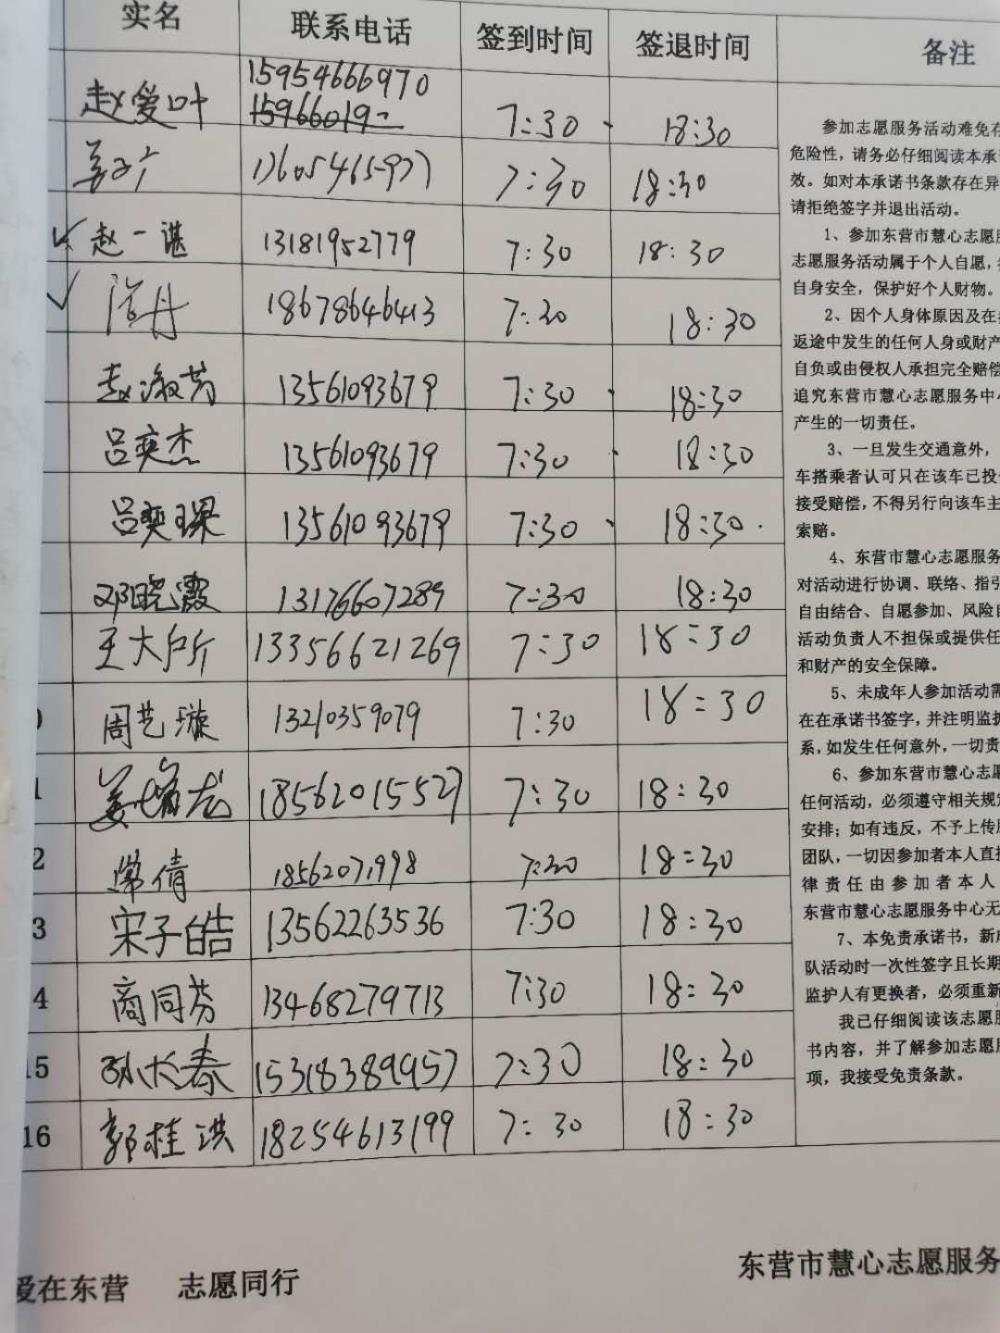 实名 联系电话 签到时间 签退时间 备注
15954666970
赵爱叶 15966019 7:30 18:30
13605465977 7:30 18:30
赵一谌 13181952779 7:30 18:30
丹 18678646413 7:30 18:30
赵淑芳 13561093679 7:30 18:30
吕奕杰 13561093679 7:30 18:30
吕奕琛 13561093679 7:30 18:30
邓晓霞 13176607289 7:30 18:30
王大户斤 13356621269 7:30 18:30
周艺璇 13210359079 7:30 18:30
姜瑞龙 18562015527 7:30 18:30
2 常倩 18562071998 7:30 18:30
3 宋子皓 13562263536 7:30 18:30
4 商同芬 13468279713 7:30 18:30
15 孙长春 15318389957 7:30 18:30
16 郭桂洪 18254613199 7:30 18:30
参加志愿服务活动难免存
危险性，请务必仔细阅读本承
效。如对本承诺书条款存在异
请拒绝签字并退出活动。
1、参加东营市慧心志愿服
志愿服务活动属于个人自愿，
自身安全，保护好个人财物。
2、因个人身体原因及在
返途中发生的任何人身或财产
自负或由侵权人承担完全赔偿
追究东营市慧心志愿服务中
产生的一切责任。
3、一旦发生交通意外，
车搭乘者认可只在该车已投
接受赔偿，不得另行向该车主
索赔。
4、东营市慧心志愿服务
对活动进行协调、联络、指引
自由结合、自愿参加、风险
活动负责人不担保或提供任
和财产的安全保障。
5、未成年人参加活动需
在在承诺书签字，并注明监护
系，如发生任何意外，一切责
6、参加东营市慧心志愿
任何活动，必须遵守相关规定
安排；如有违反，不予上传
团队，一切因参加者本人直接
律责任由参加者本人
东营市慧心志愿服务中心无
7、本免责承诺书，新
队活动时一次性签字且长期
监护人有更换者，必须重新
我已仔细阅读该志愿服
书内容，并了解参加志愿
项，我接受免责条款。
爱在东营 志愿同行
东营市慧心志愿服务